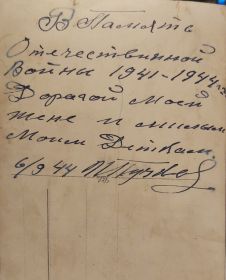 В Память
Отечественной
Войны 1941-1944 г.
Дорогой Моей
жене и милым
Моим Деткам.
6/9 44